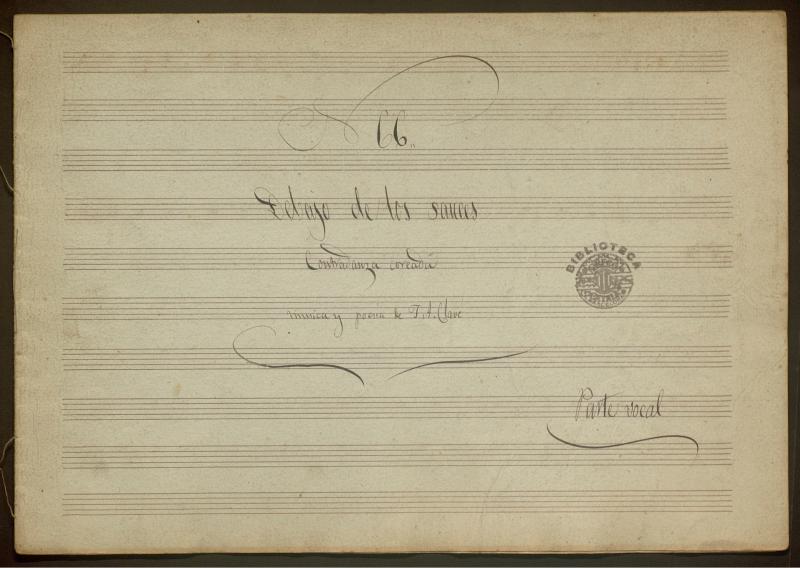 Nº 66.,
Debajo de los sauces
Contradanza coreada
musica y poesia de J. A. Clavé
BIBLIOTECA
Parte vocal